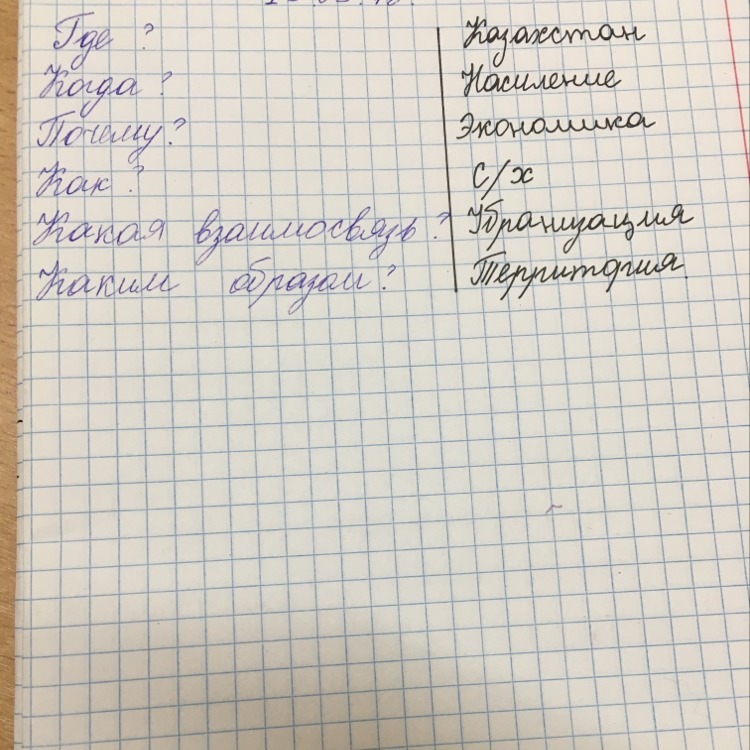 Где ?
Когда ?
Почему?
Как ?
Какая взаимосвязь ?
Каким образом ?
Казахстан
Насиление
Экономика
С/х
Убранизация
Территория.